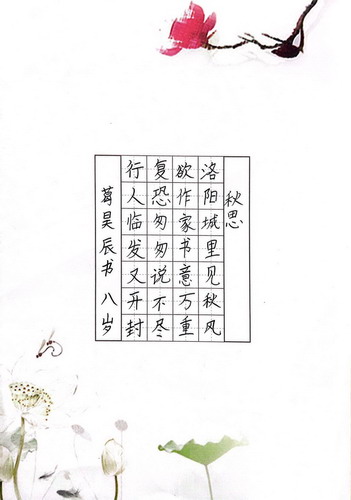 秋思
洛阳城里见秋风
欲作家书意万重
复恐匆匆说不尽
行人临发又开封
葛昊辰书 八岁